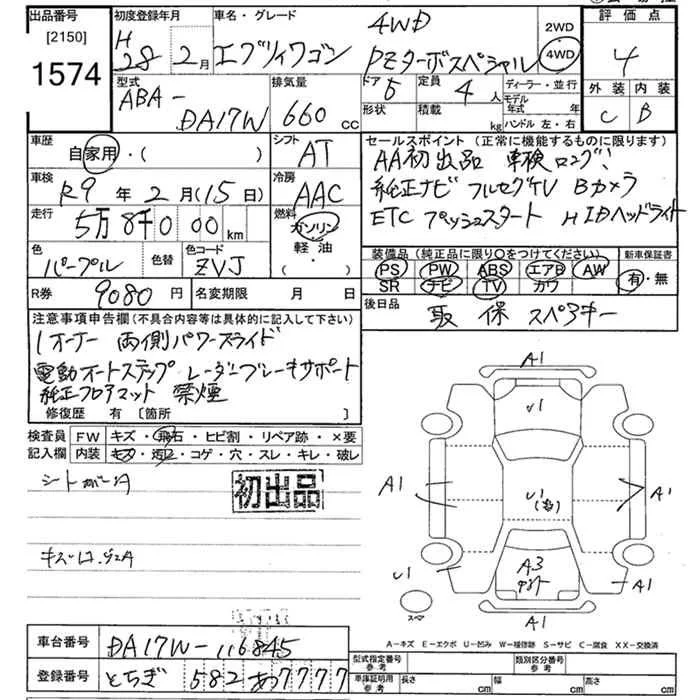 出品番号 初度登録年月 車名・グレード 4WD 2WD 評価点
[2150] H 28年 2月 エブリィワゴン PZターボスペシャル 4WD 4
1574
型式 排気量 ドア 5 定員 4人 ディーラー・並行 外装 内装
ABA- 660cc 形状 積載 kg モデル年式 年 C B
DA17W ハンドル 左・右
車歴 自家用・( ) シフト AT セールスポイント(正常に機能するものに限ります)
AA初出品 車検ロング!
車検 R9年 2月(15日) 冷房 AAC 純正ナビ フルセグTV Bカメラ
走行 5万8千000km 燃料 ガソリン 軽油 ・( ) ETC プッシュスタート HIDヘッドライト
色 パープル 色替 色コード ZVJ 装備品(純正品に限り○をつけてください) 新車保証書
PS PW ABS エアB AW 有・無
SR ナビ TV カワ
R券 9080円 名変期限 月 日 後日品 取 保 スペアキー
注意事項申告欄(不具合内容等は具体的に記入して下さい)
1オーナー 両側パワースライド
電動オートステップ レーダーブレーキサポート
純正フロアマット 禁煙
修復歴 有〔箇所 〕
検査員 FW キズ・飛石・ヒビ割・リペア跡・×要
記入欄 内装 キズ・汚れ・コゲ・穴・スレ・キレ・破レ
初出品
A1
U1
A1 A1
U1
A3
U1 A1
スペア
A1
A-キズ E-エクボ U-凹み W-補修跡 S-サビ C-腐食 XX-交換済
車台番号 DA17W-116845 型式指定番号 参考 類別区分番号 参考
登録番号 とちぎ 582 あ 7777 車庫証明用 参考 長さ cm 幅 cm 高さ cm